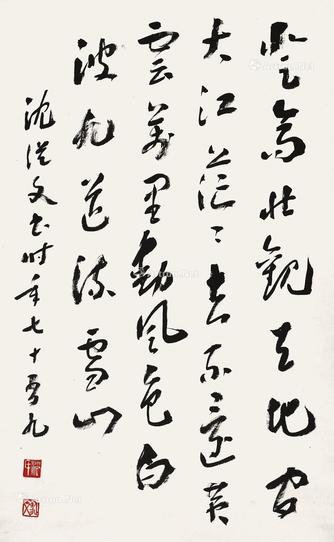 登高壯觀天地間
大江茫〻去不還黃
雲萬里動風色白
波九道流雪山
沈從文書時年七十九